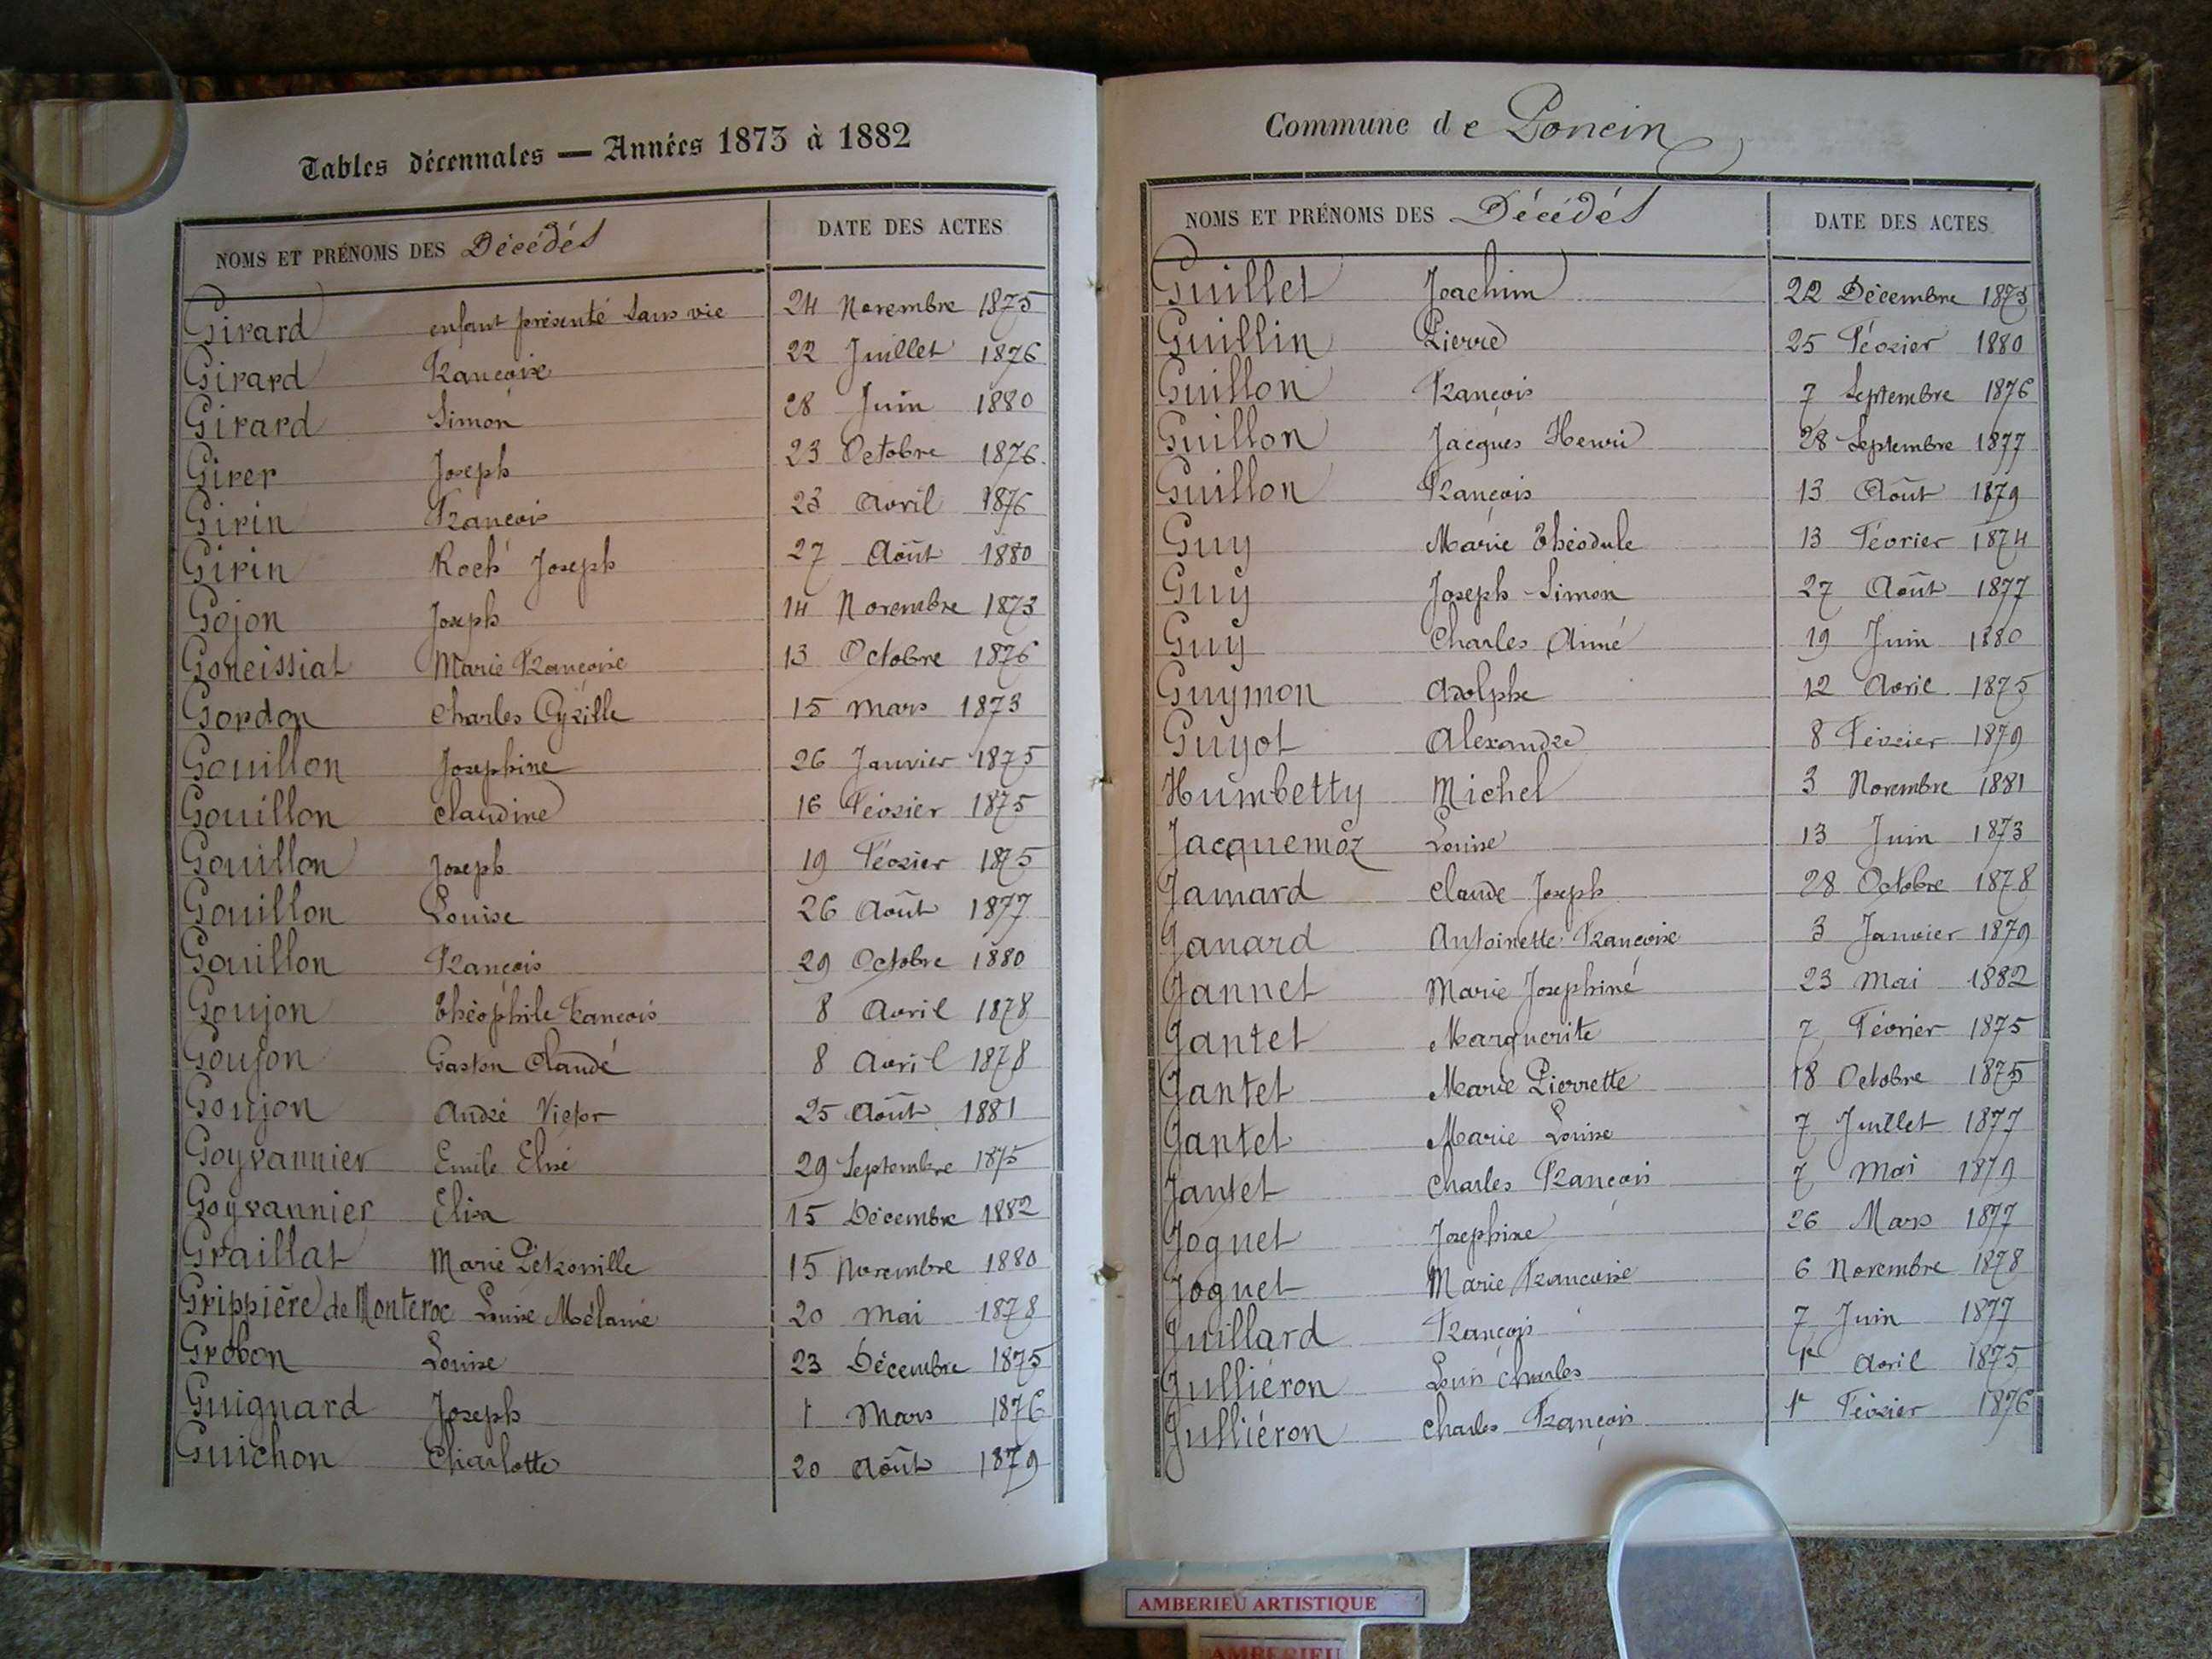 Tables décennales — Années 1873 à 1882
NOMS ET PRÉNOMS DES Décédés DATE DES ACTES
Girard enfant présenté sans vie 24 Novembre 1875
Girard Françoise 22 Juillet 1876
Girard Simon 28 Juin 1880
Girer Joseph 23 Octobre 1876
Girin François 23 Avril 1876
Girin Roch Joseph 27 Août 1880
Gojon Joseph 14 Novembre 1873
Goneissiat Marie Françoise 13 Octobre 1876
Gordon Charles Cyrille 15 Mars 1873
Gouillon Josephine 26 Janvier 1875
Gouillon Claudine 16 Février 1875
Gouillon Joseph 19 Février 1875
Gouillon Louise 26 Août 1877
Gouillon François 29 Octobre 1880
Goujon Théophile François 8 Avril 1878
Goujon Gaston Claude 8 Avril 1878
Goujon André Victor 25 Août 1881
Goyvannier Emile Elisé 29 Septembre 1875
Goyvannier Elisa 15 Décembre 1882
Graillat Marie Pétronille 15 Novembre 1880
Grippière de Monteroc Louise Mélanie 20 Mai 1878
Grobon Louise 23 Décembre 1875
Guignard Joseph 1 Mars 1876
Guichon Charlotte 20 Août 1879
Commune de Poncin
NOMS ET PRÉNOMS DES Décédés DATE DES ACTES
Guillet Joachim 22 Décembre 1873
Guillin Pierre 25 Février 1880
Guillon François 7 Septembre 1876
Guillon Jacques Henri 28 Septembre 1877
Guillon François 13 Août 1879
Guy Marie Théodule 13 Février 1874
Guy Joseph-Simon 27 Août 1877
Guy Charles Aimé 19 Juin 1880
Guymon Adolphe 12 Avril 1875
Guyot Alexandre 8 Février 1879
Humbetty Michel 3 Novembre 1881
Jacquemoz Louise 13 Juin 1873
Jamard Claude Joseph 28 Octobre 1878
Janard Antoinette Françoise 3 Janvier 1879
Jannet Marie Josephine 23 Mai 1882
Jantet Marguerite 7 Février 1875
Jantet Marie Pierrette 18 Octobre 1875
Jantet Marie Louise 7 Juillet 1877
Jantet Charles François 7 Mai 1879
Joguet Josephine 26 Mars 1877
Joguet Marie Françoise 6 Novembre 1878
Juillard François 7 Juin 1877
Julliéron Louis Charles 1r Avril 1875
Julliéron Charles François 1r Février 1876
AMBERIEU ARTISTIQUE
AMBERIEU